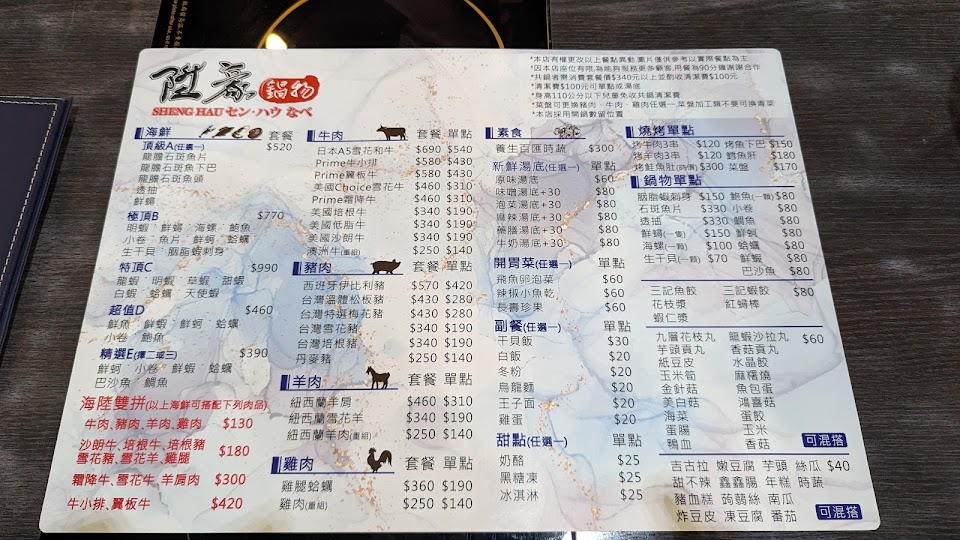 陞豪 鍋物
SHENG HAU セン・ハウ なべ
*本店有權更改以上餐點異動,圖片僅供參考以實際餐點為主
*因本店座位有限,為能夠服務更多顧客,用餐為90分鐘謝謝合作
*共鍋者需消費套餐價$340元以上並酌收清潔費$100元
*清潔費$100元可單點或湯底
*身高110公分以下兒童免收共鍋清潔費
*菜盤可更換豬肉、牛肉、雞肉任選一,菜盤加工類不要可換青菜
*本店採用開鍋數留位置
海鮮 套餐
頂級A(任選一) $520
龍膽石斑魚片
龍膽石斑魚下巴
龍膽石斑魚頭
透抽
鮮鮑
極頂B $770
明蝦 鮮蝦 海螺 鮑魚
小卷 魚片 鮮蚵 蛤蠣
生干貝 胭脂蝦刺身
特頂C $990
龍蝦 明蝦 草蝦 甜蝦
白蝦 蛤蠣 天使蝦
超值D $460
鮮魚 鮮蝦 鮮蚵 蛤蠣
小卷 鮑魚
精選E(擇二或三) $390
鮮蚵 小卷 鮮蝦 蛤蠣
巴沙魚 鯛魚
海陸雙拼(以上海鮮可搭配下列肉品)
牛肉、豬肉、羊肉、雞肉 $130
沙朗牛、培根牛、培根豬
雪花豬、雪花羊、雞腿 $180
霜降牛、雪花牛、羊肩肉 $300
牛小排、翼板牛 $420
牛肉 套餐 單點
日本A5雪花和牛 $690 $540
Prime牛小排 $580 $430
Prime翼板牛 $580 $430
美國Choice雪花牛 $460 $310
Prime霜降牛 $460 $310
美國培根牛 $340 $190
美國低脂牛 $340 $190
美國沙朗牛 $340 $190
澳洲牛(重組) $250 $140
豬肉 套餐 單點
西班牙伊比利豬 $570 $420
台灣溫體松板豬 $430 $280
台灣特選梅花豬 $430 $280
台灣雪花豬 $340 $190
台灣培根豬 $340 $190
丹麥豬 $250 $140
羊肉 套餐 單點
紐西蘭羊肩 $460 $310
紐西蘭雪花羊 $340 $190
紐西蘭羊肉(重組) $250 $140
雞肉 套餐 單點
雞腿蛤蠣 $360 $190
雞肉(重組) $250 $140
素食 套餐
養生百匯時蔬 $300
新鮮湯底(任選一) 單點
原味湯底 $60
味噌湯底+30 $80
泡菜湯底+30 $80
麻辣湯底+30 $80
藥膳湯底+30 $80
牛奶湯底+30 $80
開胃菜(任選一) 單點
飛魚卵泡菜 $60
辣椒小魚乾 $60
長壽珍果 $60
副餐(任選一) 單點
干貝飯 $30
白飯 $20
冬粉 $20
烏龍麵 $20
王子面 $20
雞蛋 $20
甜點(任選一) 單點
奶酪 $25
黑糖凍 $25
冰淇淋 $25
燒烤單點
烤牛肉3串 $120 烤魚下巴 $150
烤羊肉3串 $120 鱈魚肝 $180
烤鮭魚肚(時價) $300 菜盤 $170
鍋物單點
胭脂蝦刺身 $150 鮑魚(一顆) $80
石斑魚片 $330 小卷 $80
透抽 $330 鯛魚 $80
鮮鮑(一隻) $150 鮮蚵 $80
海螺(一顆) $100 蛤蠣 $80
生干貝(一顆) $70 鮮蝦 $80
巴沙魚 $80
三記魚餃 三記蝦餃 $80
花枝漿 紅蟳棒
蝦仁漿
九層花枝丸 龍蝦沙拉丸 $60
芋頭貢丸 香菇貢丸
紙豆皮 水晶餃
玉米筍 麻糬燒
金針菇 魚包蛋
美白菇 鴻喜菇
海菜 蛋餃
蛋腸 玉米
鴨血 香菇 可混搭
吉古拉 嫩豆腐 芋頭 絲瓜 $40
甜不辣 鑫鑫腸 年糕 時蔬
豬血糕 蒟蒻絲 南瓜
炸豆皮 凍豆腐 番茄 可混搭